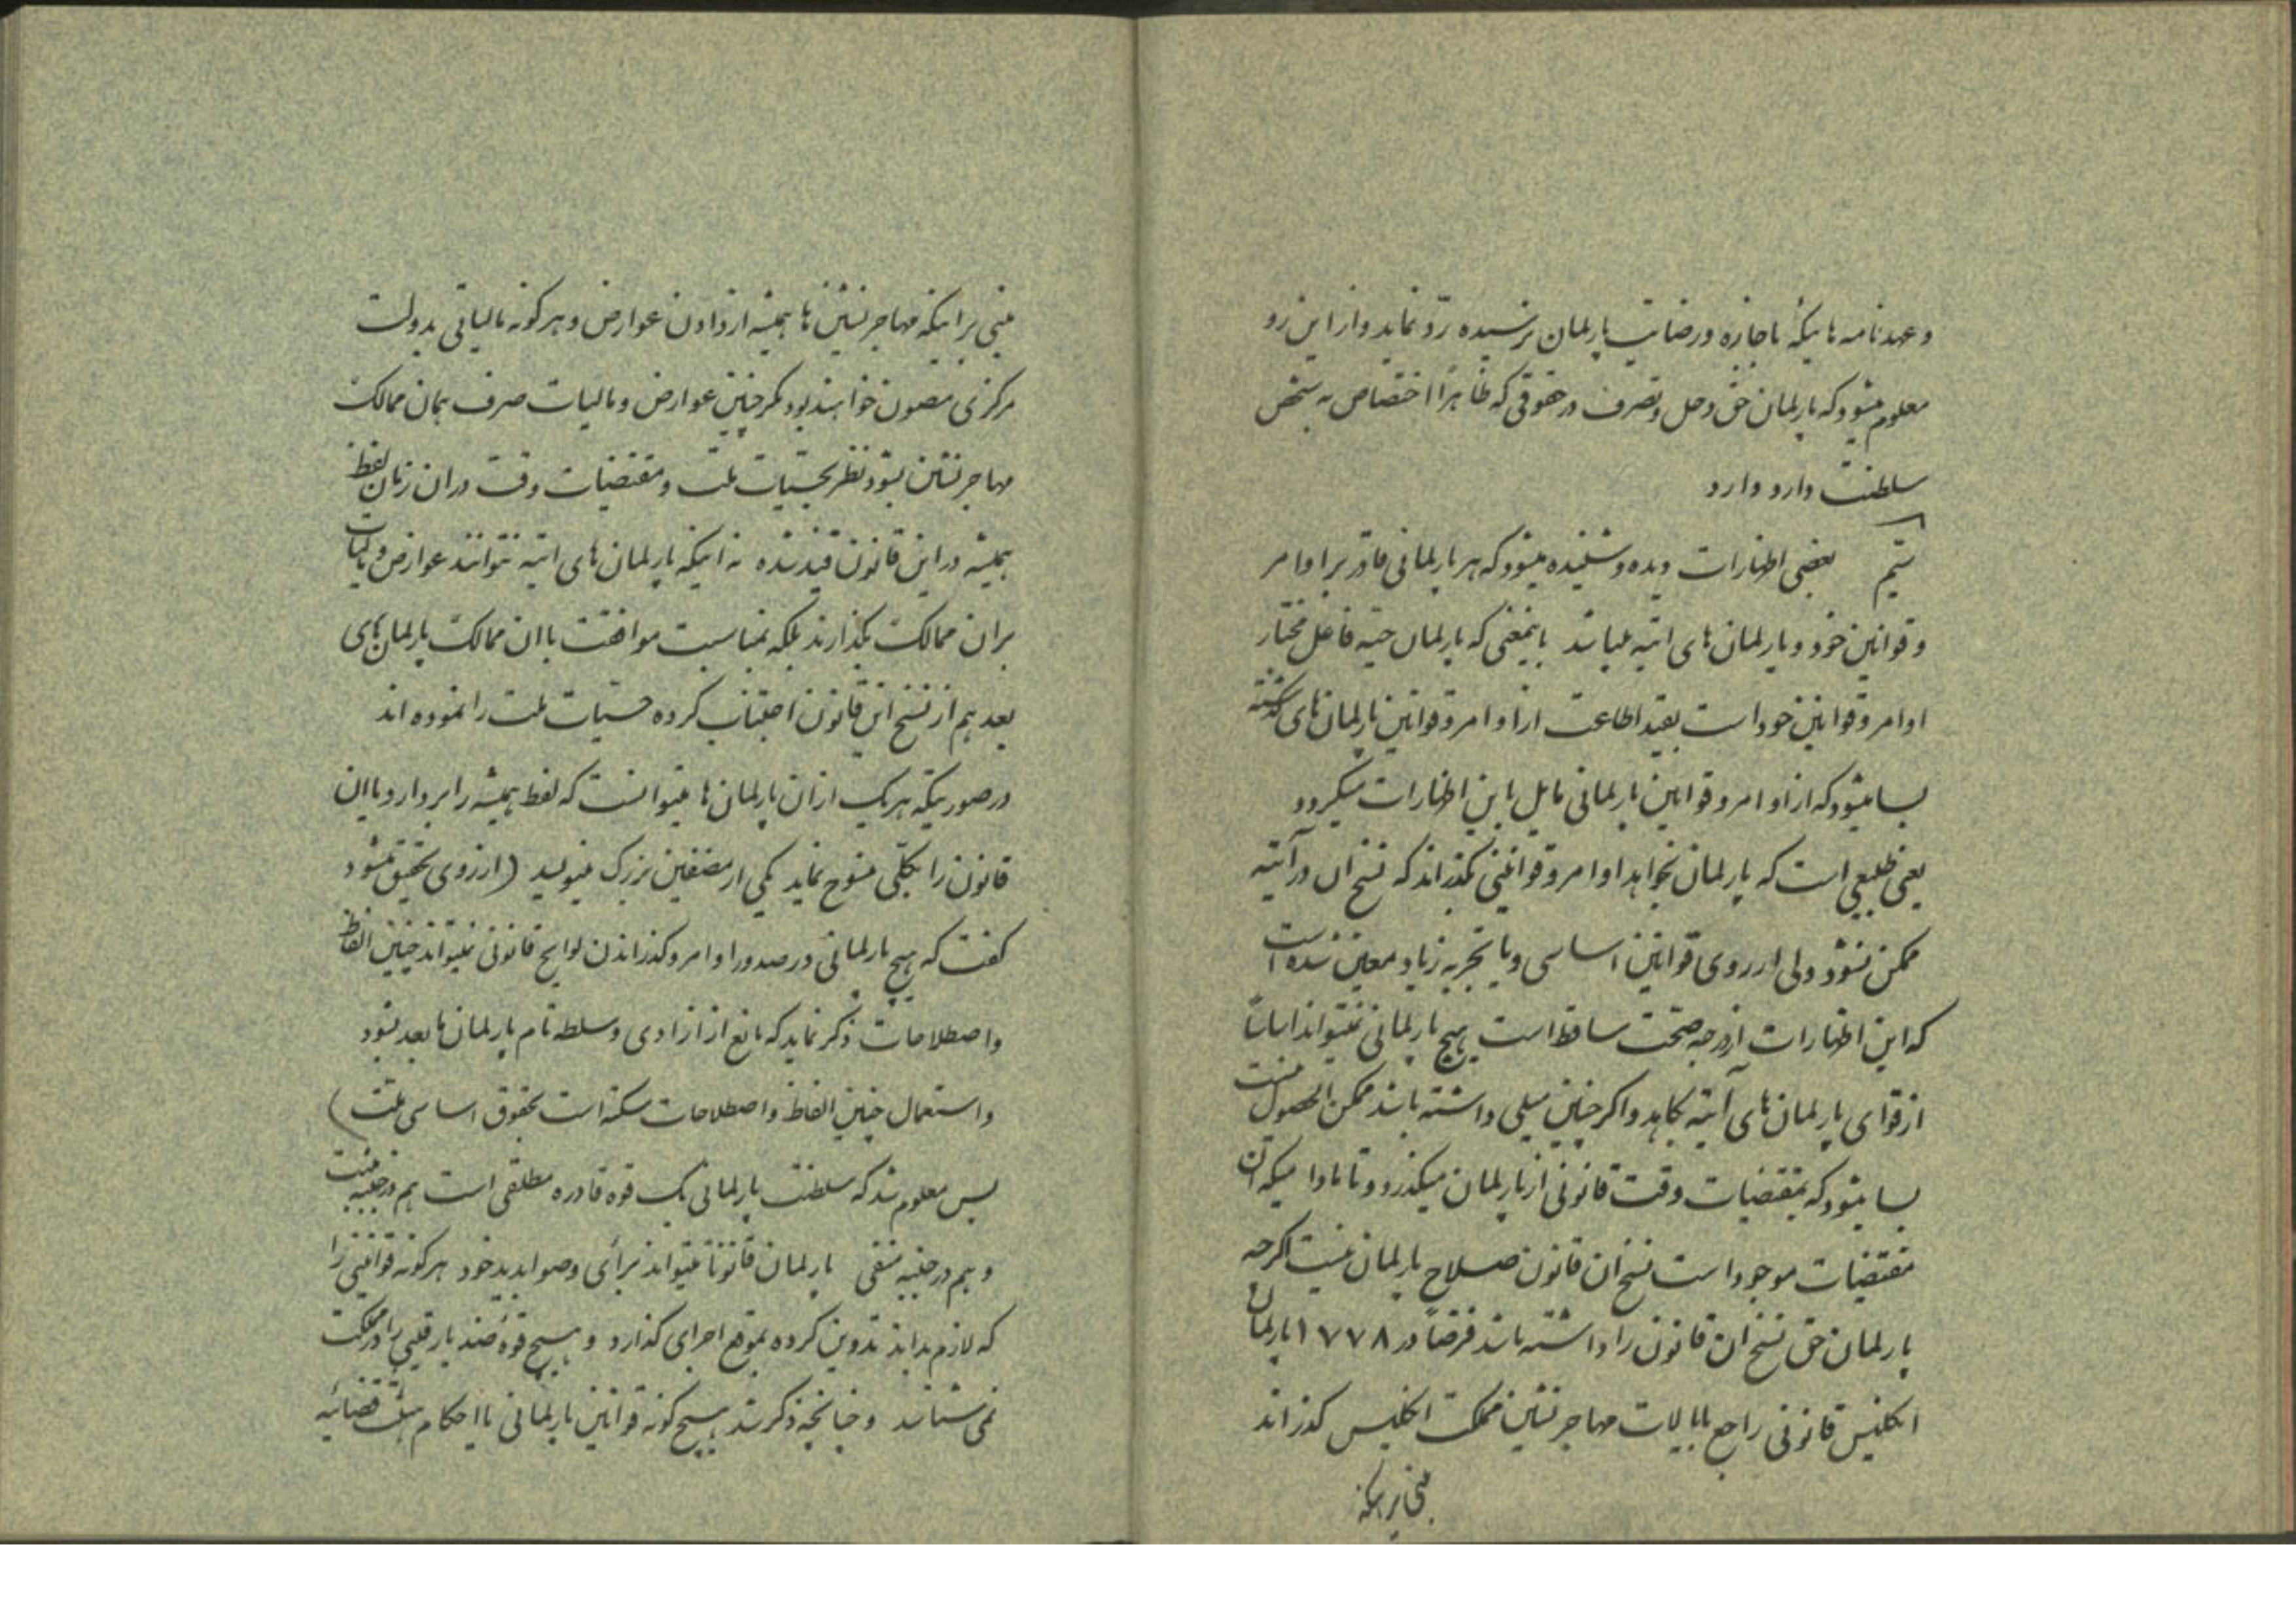 و عهدنامه هائیکه باجازه و رضایت پارلمان نرسیده ردّ نماید و از این رو
معلوم میشود که پارلمان حق دخل و تصرف در حقوقی که ظاهراً اختصاص به شخص
سلطنت دارد دارد
بعضی اظهارات دیده و شنیده میشود که هر پارلمانی قادر بر اوامر
و قوانین خود و پارلمان های اتیه میباشد باینمعنی که پارلمان حیّه فاعل مختار
اوامر و قوانین خود است بقید اطاعت از اوامر و قوانین پارلمان های گذشته
بسا میشود که از اوامر و قوانین پارلمانی مایل باین اظهارات میگردد
یعنی طبیعی است که پارلمان بخواهد اوامر و قوانینی بگذراند که نسخ ان در آتیه
ممکن نشود ولی از روی قوانین اساسی و یا تجربه زیاد معین شده است
که این اظهارات از درجه صحت ساقط است هیچ پارلمانی نمیتواند اساساً
از قوای پارلمان های آتیه بکاهد و اگر چنین میلی داشته باشد ممکن الحصول نیست
بسا میشود که بمقتضیات وقت قانونی از پارلمان میگذرد و تا مادامیکه ان
مقتضیات موجود است نسخ ان قانون صلاح پارلمان نیست اگرچه
پارلمان حق نسخ ان قانون را داشته باشد فرضاً در ۱۷۷۸ پارلمان
انگلیس قانونی راجع بایالات مهاجر نشین مملکت انگلیس گذراند
مبنی بر اینکه
مبنی بر اینکه مهاجر نشین ها همیشه از دادن عوارض و هرگونه مالیاتی بدولت
مرکزی مصون خواهند بود مگر چنین عوارض و مالیات صرف همان ممالک
مهاجر نشین بشود نظر بحسیات ملت و مقتضیات وقت در ان زمان لفظ
همیشه در این قانون قید شده نه اینکه پارلمان های اتیه نتوانند عوارض و مالیات
بر ان ممالک بگذارند بلکه بمناسبت موافقت با ان ممالک پارلمان های
بعد هم از نسخ این قانون اجتناب کرده حسیات ملت را نموده اند
در صورتیکه هر یک از ان پارلمان ها میتوانست که لفظ همیشه را بردارد یا ان
قانون را بکلّی منسوخ نماید یکی از مصنفین بزرگ مینویسد (از روی تحقیق میشود
گفت که هیچ پارلمانی در صدور اوامر و گذراندن لوایح قانونی نمیتواند چنین الفاظ
و اصطلاحات ذکر نماید که مانع از ازادی و سلطه تام پارلمان ما بعد بشود
و استعمال چنین الفاظ و اصطلاحات سکته است بحقوق اساسی ملت)
پس معلوم شد که سلطنت پارلمانی یک قوه قادره مطلقی است هم در جنبه مثبت
و هم در جنبه منفی پارلمان قانوناً میتواند برأی و صوابدید خود هرگونه قوانینی را
که لازم بداند تدوین کرده بموقع اجرای گذارد و هیچ قوهٔ ضد یا رقیبی را در مملکت
نمی شناسد و چنانچه ذکر شد هیچ گونه قوانین پارلمانی با احکام هیئت قضائیه